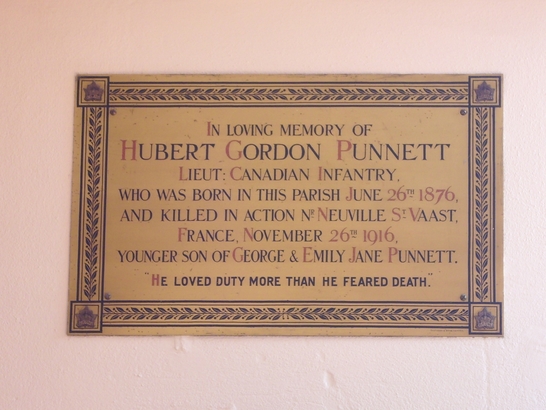 IN LOVING MEMORY OF
HUBERT GORDON PUNNETT
LIEUT: CANADIAN INFANTRY,
WHO WAS BORN IN THIS PARISH JUNE 26TH 1876,
AND KILLED IN ACTION NR NEUVILLE ST VAAST,
FRANCE, NOVEMBER 26TH 1916,
YOUNGER SON OF GEORGE & EMILY JANE PUNNETT.
"HE LOVED DUTY MORE THAN HE FEARED DEATH."